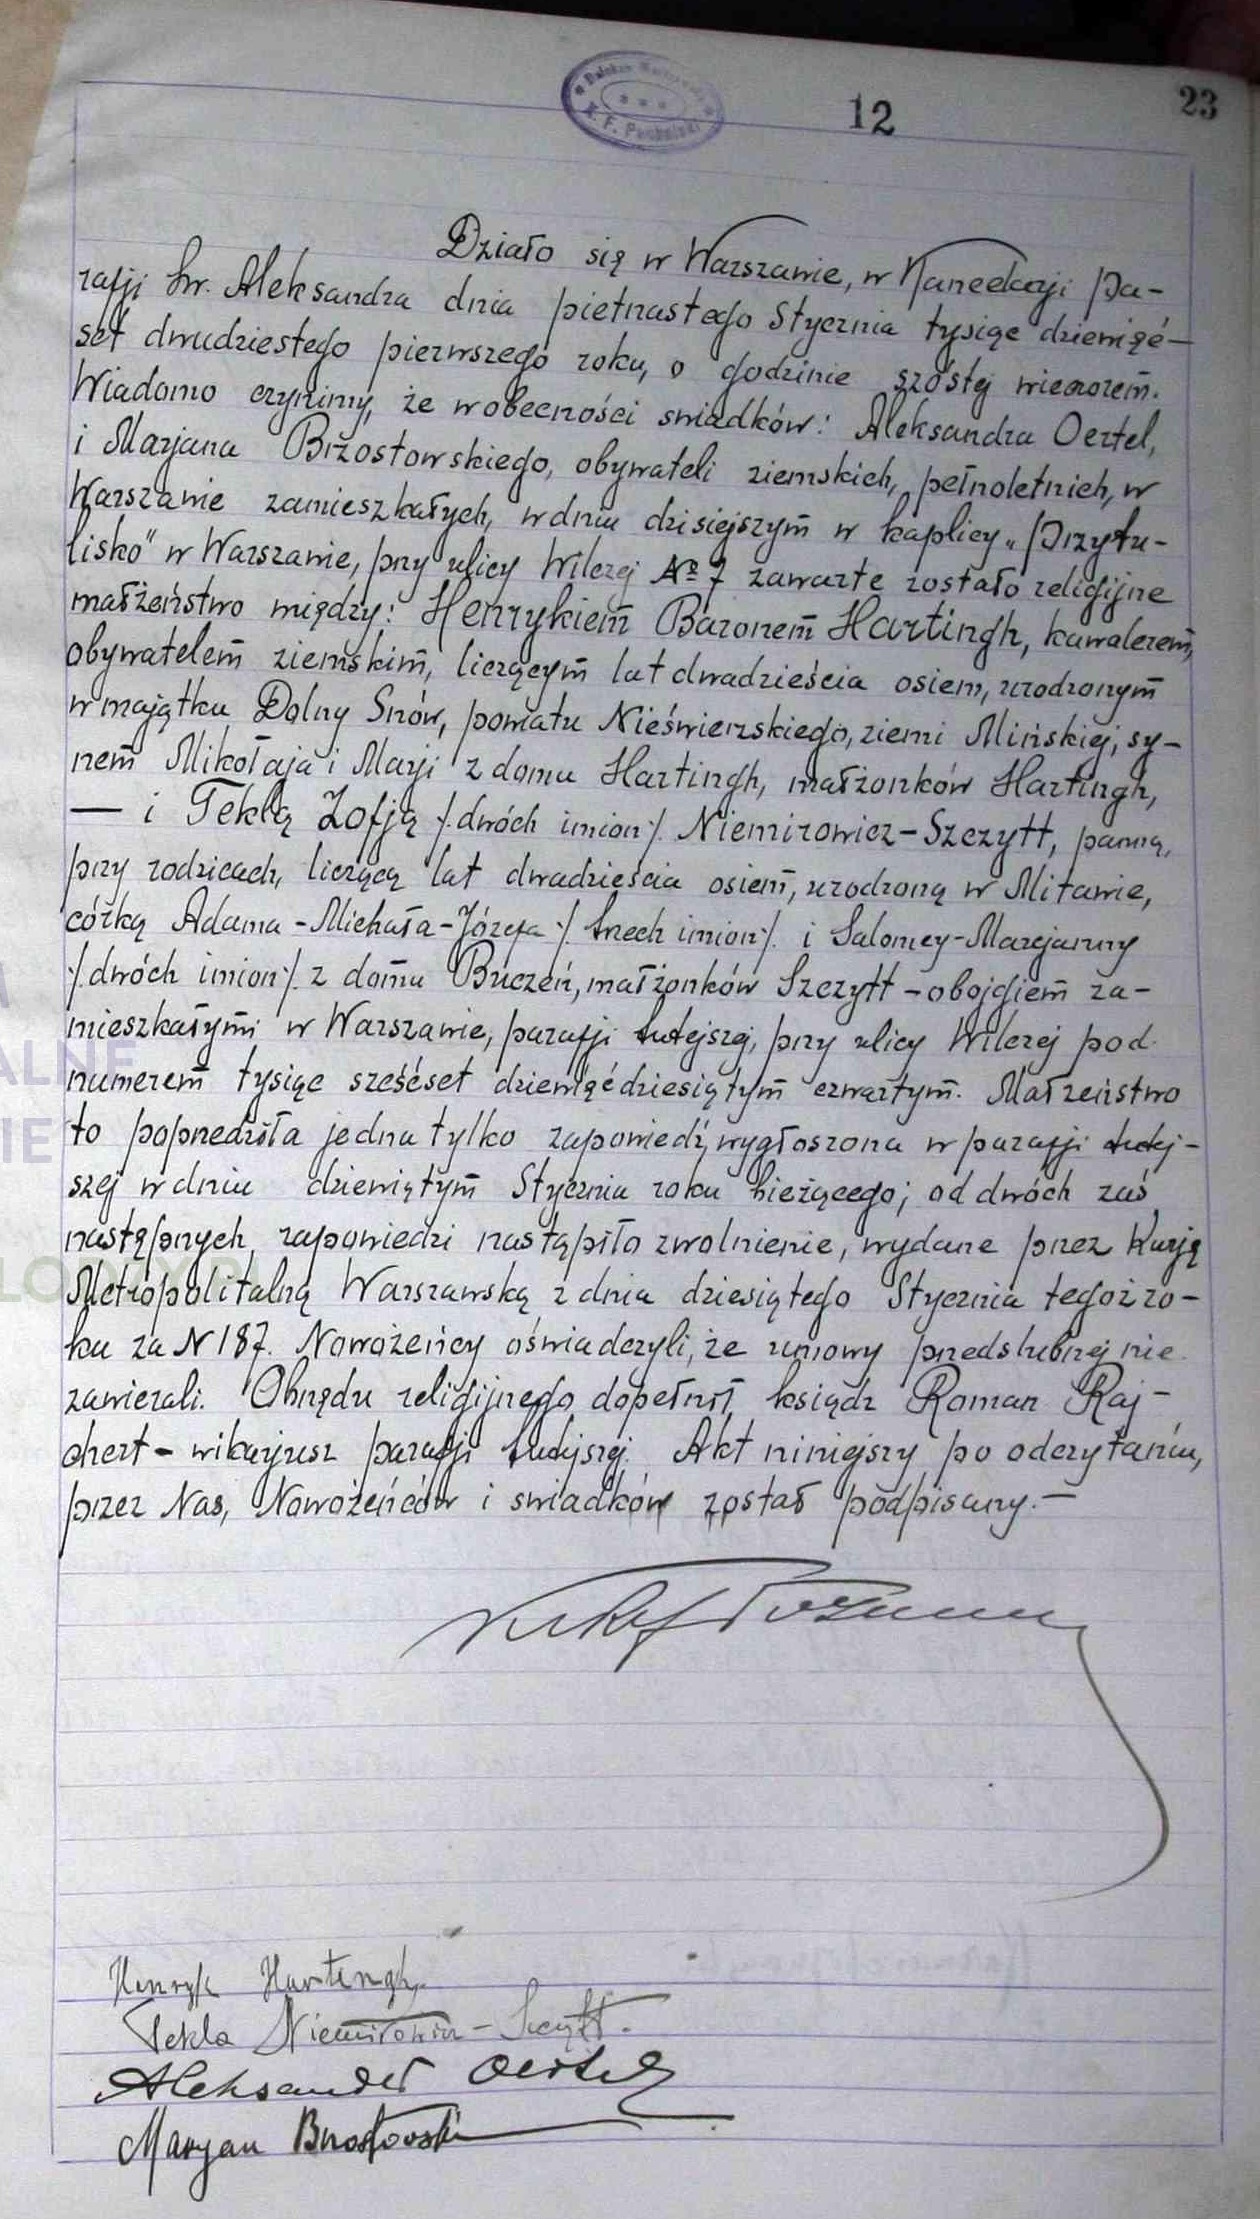 12
23
Działo się w Warszawie, w Kancelarji Pa-
rafji Św. Aleksandra dnia piętnastego Stycznia tysiąc dziewięć-
set dwudziestego pierwszego roku, o godzinie szóstej wieczorem.
Wiadomo czynimy, że w obecności swiadków: Aleksandra Oertel,
i Marjana Brzostowskiego, obywateli ziemskich, pełnoletnich, w
Warszawie zamieszkałych, w dniu dzisiejszym w kaplicy „Przytu-
lisko" w Warszawie, przy ulicy Wilczej № 7 zawarte zostało religijne
małżeństwo między: Henrykiem Baronem Hartingh, kawalerem,
obywatelem ziemskim, liczącym lat dwadzieścia osiem, urodzonym
w majątku Dolny Snów, powiatu Nieświerzskiego, ziemi Mińskiej, sy-
nem Mikołaja i Marji z domu Hartingh, małżonków Hartingh,
— i Teklą Zofją /:dwóch imion:/ Niemirowicz-Szczytt, panną,
przy rodzicach, liczącą lat dwadzieścia osiem, urodzoną w Mitawie,
córką Adama-Michała-Józefa /:trzech imion:/ i Salomey-Marcjanny
/:dwóch imion:/ z domu Buczeń, małżonków Szczytt - obojgiem za-
mieszkałymi w Warszawie, parafji tutejszej, przy ulicy Wilczej pod
numerem tysiąc sześćset dziewięćdziesiątym czwartym. Małżeństwo
to poprzedziła jedna tylko zapowiedź, wygłoszona w parafji tutej-
szej w dniu dziewiątym Stycznia roku bieżącego; od dwóch zaś
następnych zapowiedzi nastąpiło zwolnienie, wydane przez Kurję
Metropolitalną Warszawską z dnia dziesiątego Stycznia tegoż ro-
ku za N 187. Nowożeńcy oświadczyli, że umowy przedslubnej nie
zawierali. Obrzędu religijnego dopełnił ksiądz Roman Raj-
chert - wikarjusz parafji tutejszej. Akt niniejszy po odczytaniu,
przez Nas, Nowożeńców i swiadków został podpisany.-
Henryk Hartingh
Tekla Niemirowicz-Szczytt.
Aleksander Oertel
Maryan Brzostowski